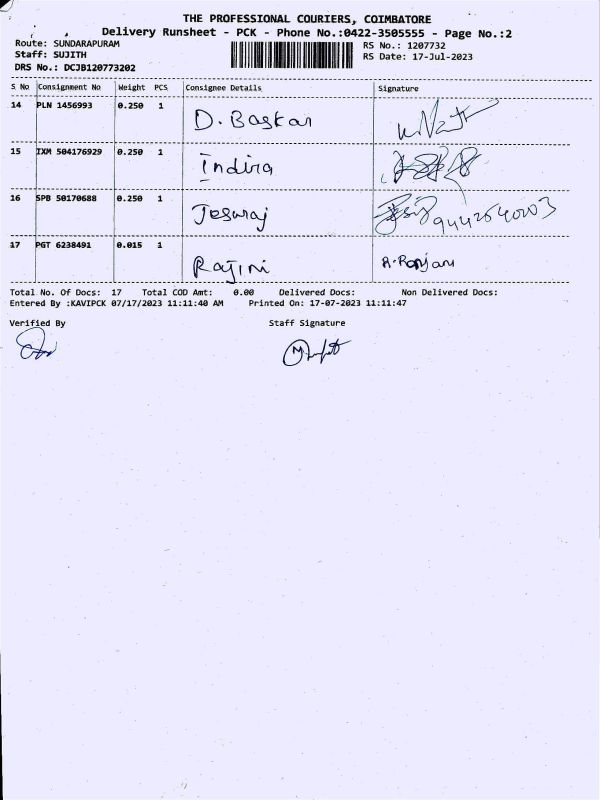 THE PROFESSIONAL COURIERS, COIMBATORE
Delivery Runsheet - PCK - Phone No.:0422-3505555 - Page No.:2
Route: SUNDARAPURAM
RS No.: 1207732
Staff: SUJITH
RS Date: 17-Jul-2023
DRS No.: DCJB120773202
S No Consignment No Weight PCS Consignee Details Signature
14 PLN 1456993 0.250 1 D. Baskar
15 IXM 504176929 0.250 1 Indira
16 SPB 50170688 0.250 1 Jesuraj
17 PGT 6238491 0.015 1 Rajini R.Ranjani
Total No. Of Docs: 17 Total COD Amt: 0.00 Delivered Docs: Non Delivered Docs:
Entered By :KAVIPCK 07/17/2023 11:11:40 AM Printed On: 17-07-2023 11:11:47
Verified By Staff Signature